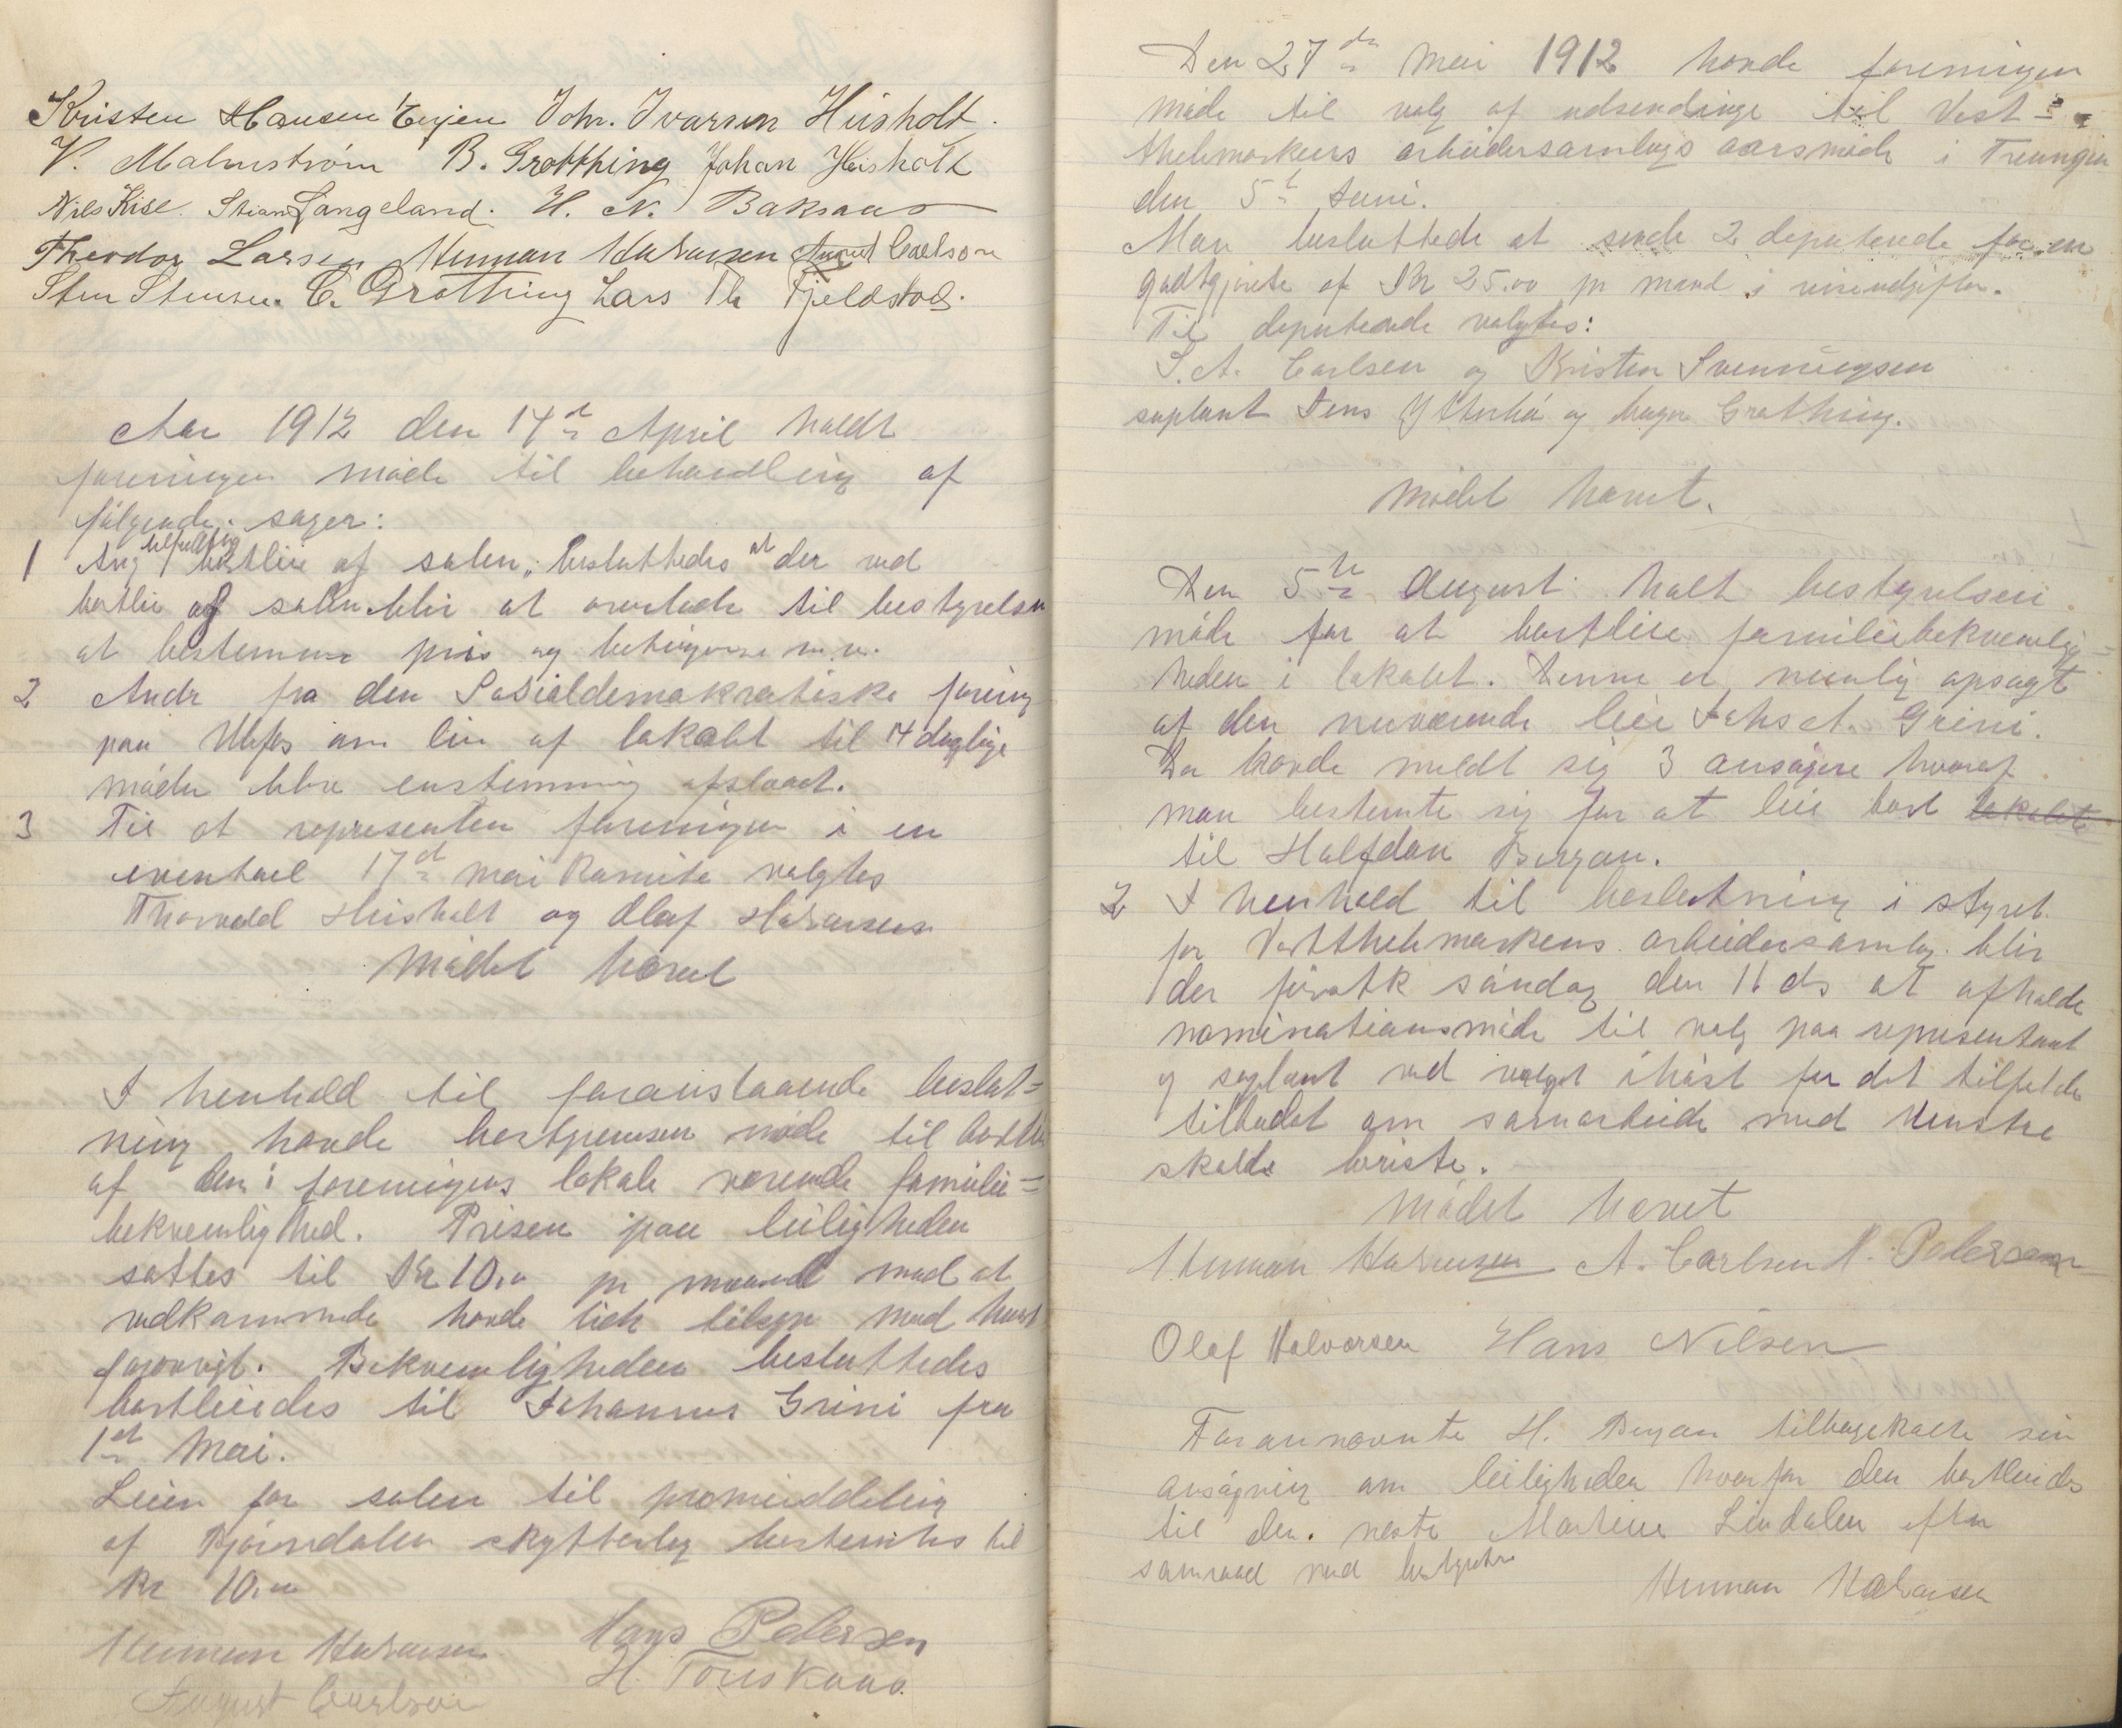 Kristen Hansen Eejen Joh. Ivarsen Heisholt.
V. Malmstrøm B. Grotthing Johan Heisholt
Nils Kise. Stian Langeland. H. N. Baksaas
Theodor Larsen Herman Halvorsen August Carlson
Sten Stensen. C. Grotthing Lars Th Fjeldstad.
Aar 1912 den 14de April holdt
foreningen møde til behandling af
følgende sager:
1 Ang bortleie af salen, besluttedes at der ved
bortlei af salen blir at overlade til bestyrelsen
at bestemme pris og betingelse m.m.
2 Andr fra den Sosialdemokratiske forening
paa Ulefos om leie af lokalet til 14 daglige
møder blev enstemmig afslaaet.
3 Til at representere foreningen i en
eventuel 17de mai komite valgtes
Thorvald Heisholt og Olaf Halvorsen
Mødet hævet
I henhold til foranstaaende beslut=
ning havde bestyrelsen møde til bortleie
af den i foreningens lokale værende familie=
bekvemlighed. Prisen paa leiligheden
sattes til Kr 10.00 pr maaned mod at
vedkommende havde tilsyn med huset
forøvrigt. Bekvemligheden besluttedes
bortleiedes til Johannes Grini fra
1st Mai.
Leien for salen til premieuddeling
af Bjørndalen skytterlag bestemtes til
Kr 10.00
Herman Halvorsen Hans Pedersen
August Carlson H. Touskaas.
Den 27de Mai 1912 havde foreningen
møde til valg af udsendinge til Vest-
thelemarkens arbeidersamlags aarsmøde i Treungen
den 5te Juni.
Man besluttede at sende 2 deputerede for en
godtgjørelse af Kr 25.00 pr mand i reiseudgifter.
Til deputerede valgtes:
S. A. Carlsen og Kristen Svenningsen
suplant Jens Ytterbø og Grothing.
Mødet hævet.
Den 5te August holt bestyrelsen
møde for at bortleie familiebekvemlig=
heden i lokalet. Denne er nemlig opsagt
af den nuværende leier Johs A. Grini.
Der havde meldt sig 3 ansøgere hvoraf
man bestemte sig for at leie bort lokalet
til Halfdan Bergan.
2 I henhold til beslutning i styret
for Vestthelemarkens arbeidersamlag blir
der førstk søndag den 11 ds at afholde
nominationsmøde til valg paa representant
og suplant ved valget ihøst for det tilfelde
tilbudet om samarbeide med Venstre
skulde briste.
Mødet hævet
Herman Halvorsen A. Carlsen H. Pedersen
Olaf Halvorsen Hans Nilsen
Forannævnte H. Bergan tilbagekalte sin
ansøgning om leiligheden hvorfor den bortleides
til den neste Martin Lindalen efter
samraad med bestyrelsen
Herman Halvorsen